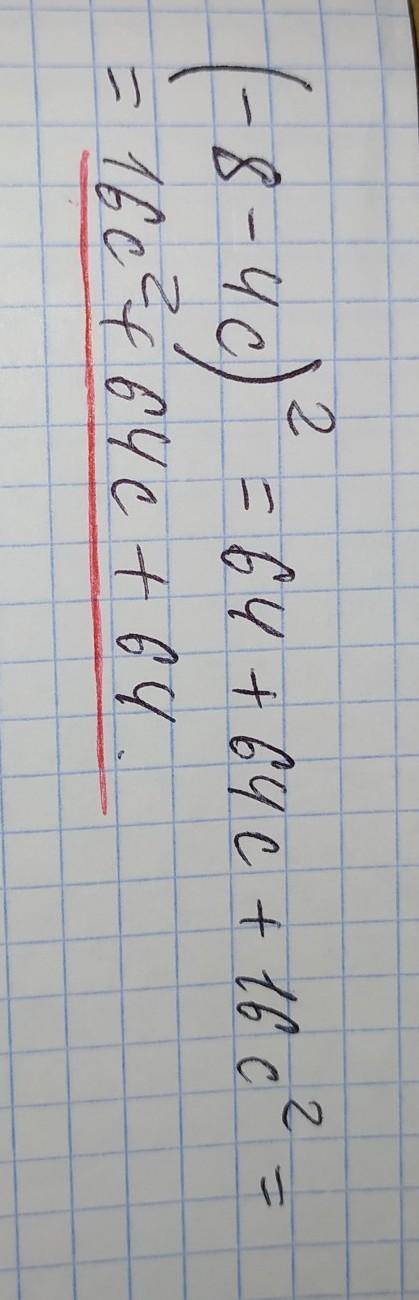 (-8-4c)² = 64 + 64c + 16c² =
= 16c² + 64c + 64.